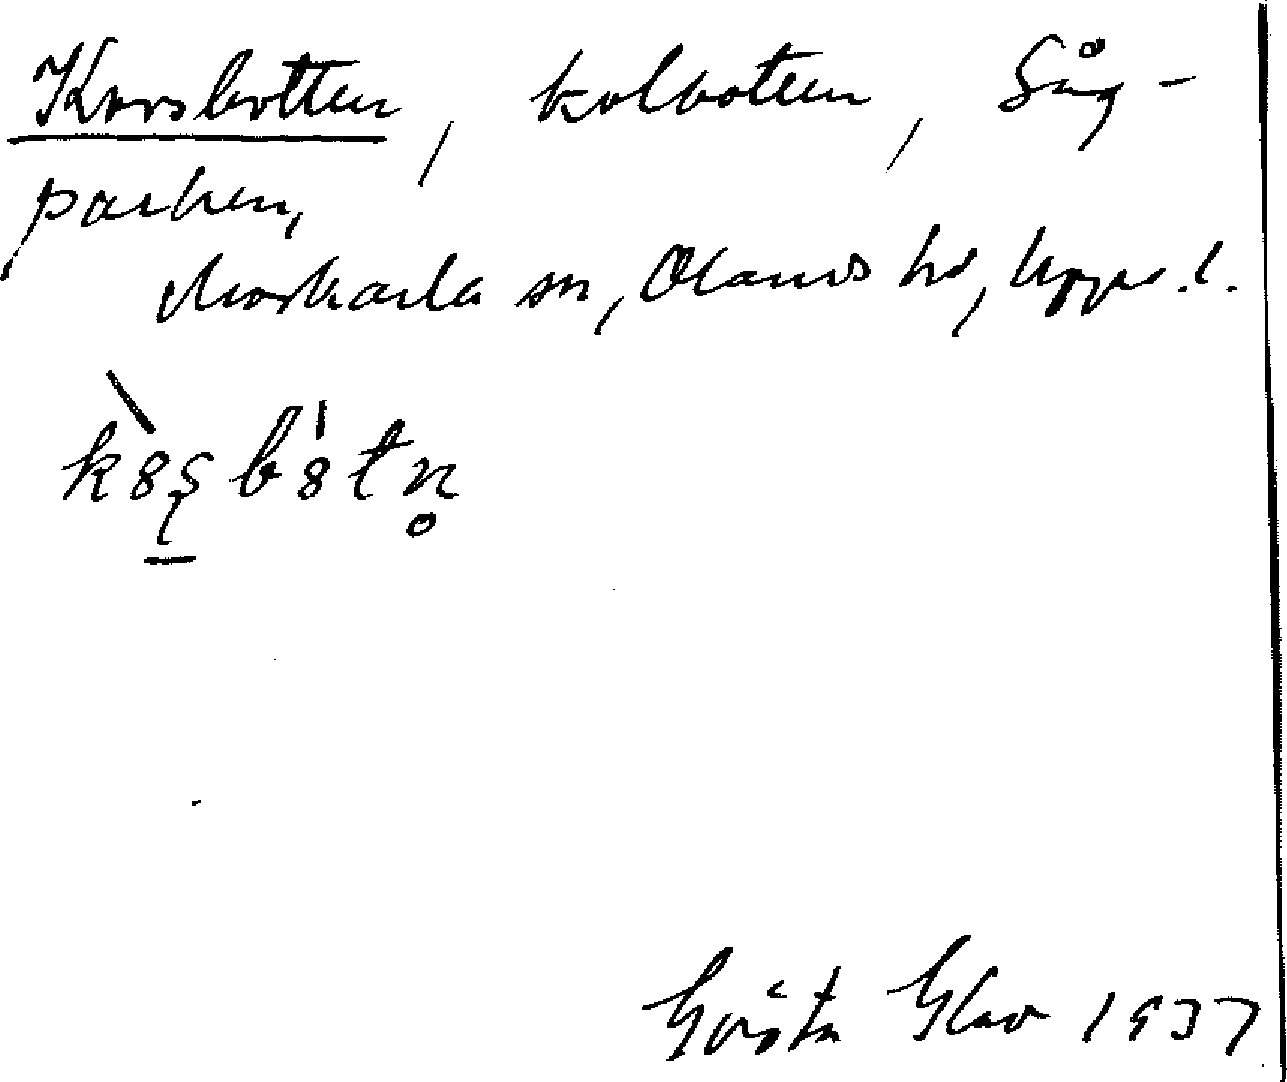 Korsbotten, kolbotten, Såg-
parken,
Morkarla sn, Olands hd, Upps. l.
Gösta Elav 1937